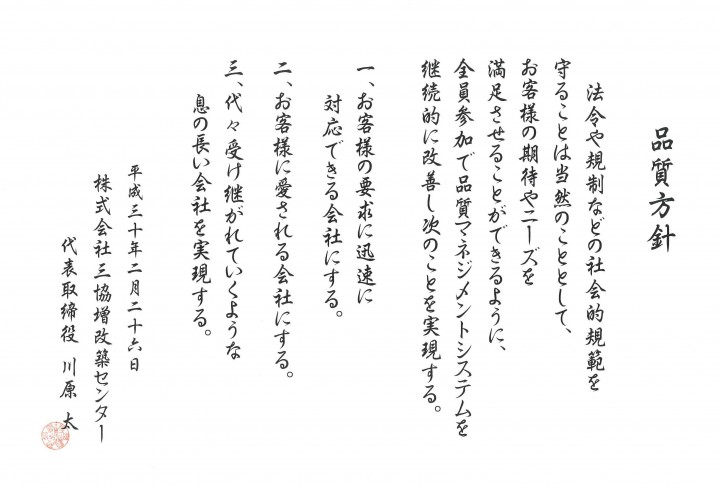 品質方針
法令や規制などの社会的規範を
守ることは当然のこととして、
お客様の期待やニーズを
満足させることができるように、
全員参加で品質マネジメントシステムを
継続的に改善し次のことを実現する。
一、お客様の要求に迅速に
対応できる会社にする。
二、お客様に愛される会社にする。
三、代々受け継がれていくような
息の長い会社を実現する。
平成三十年二月二十六日
株式会社三協増改築センター
代表取締役 川原 太